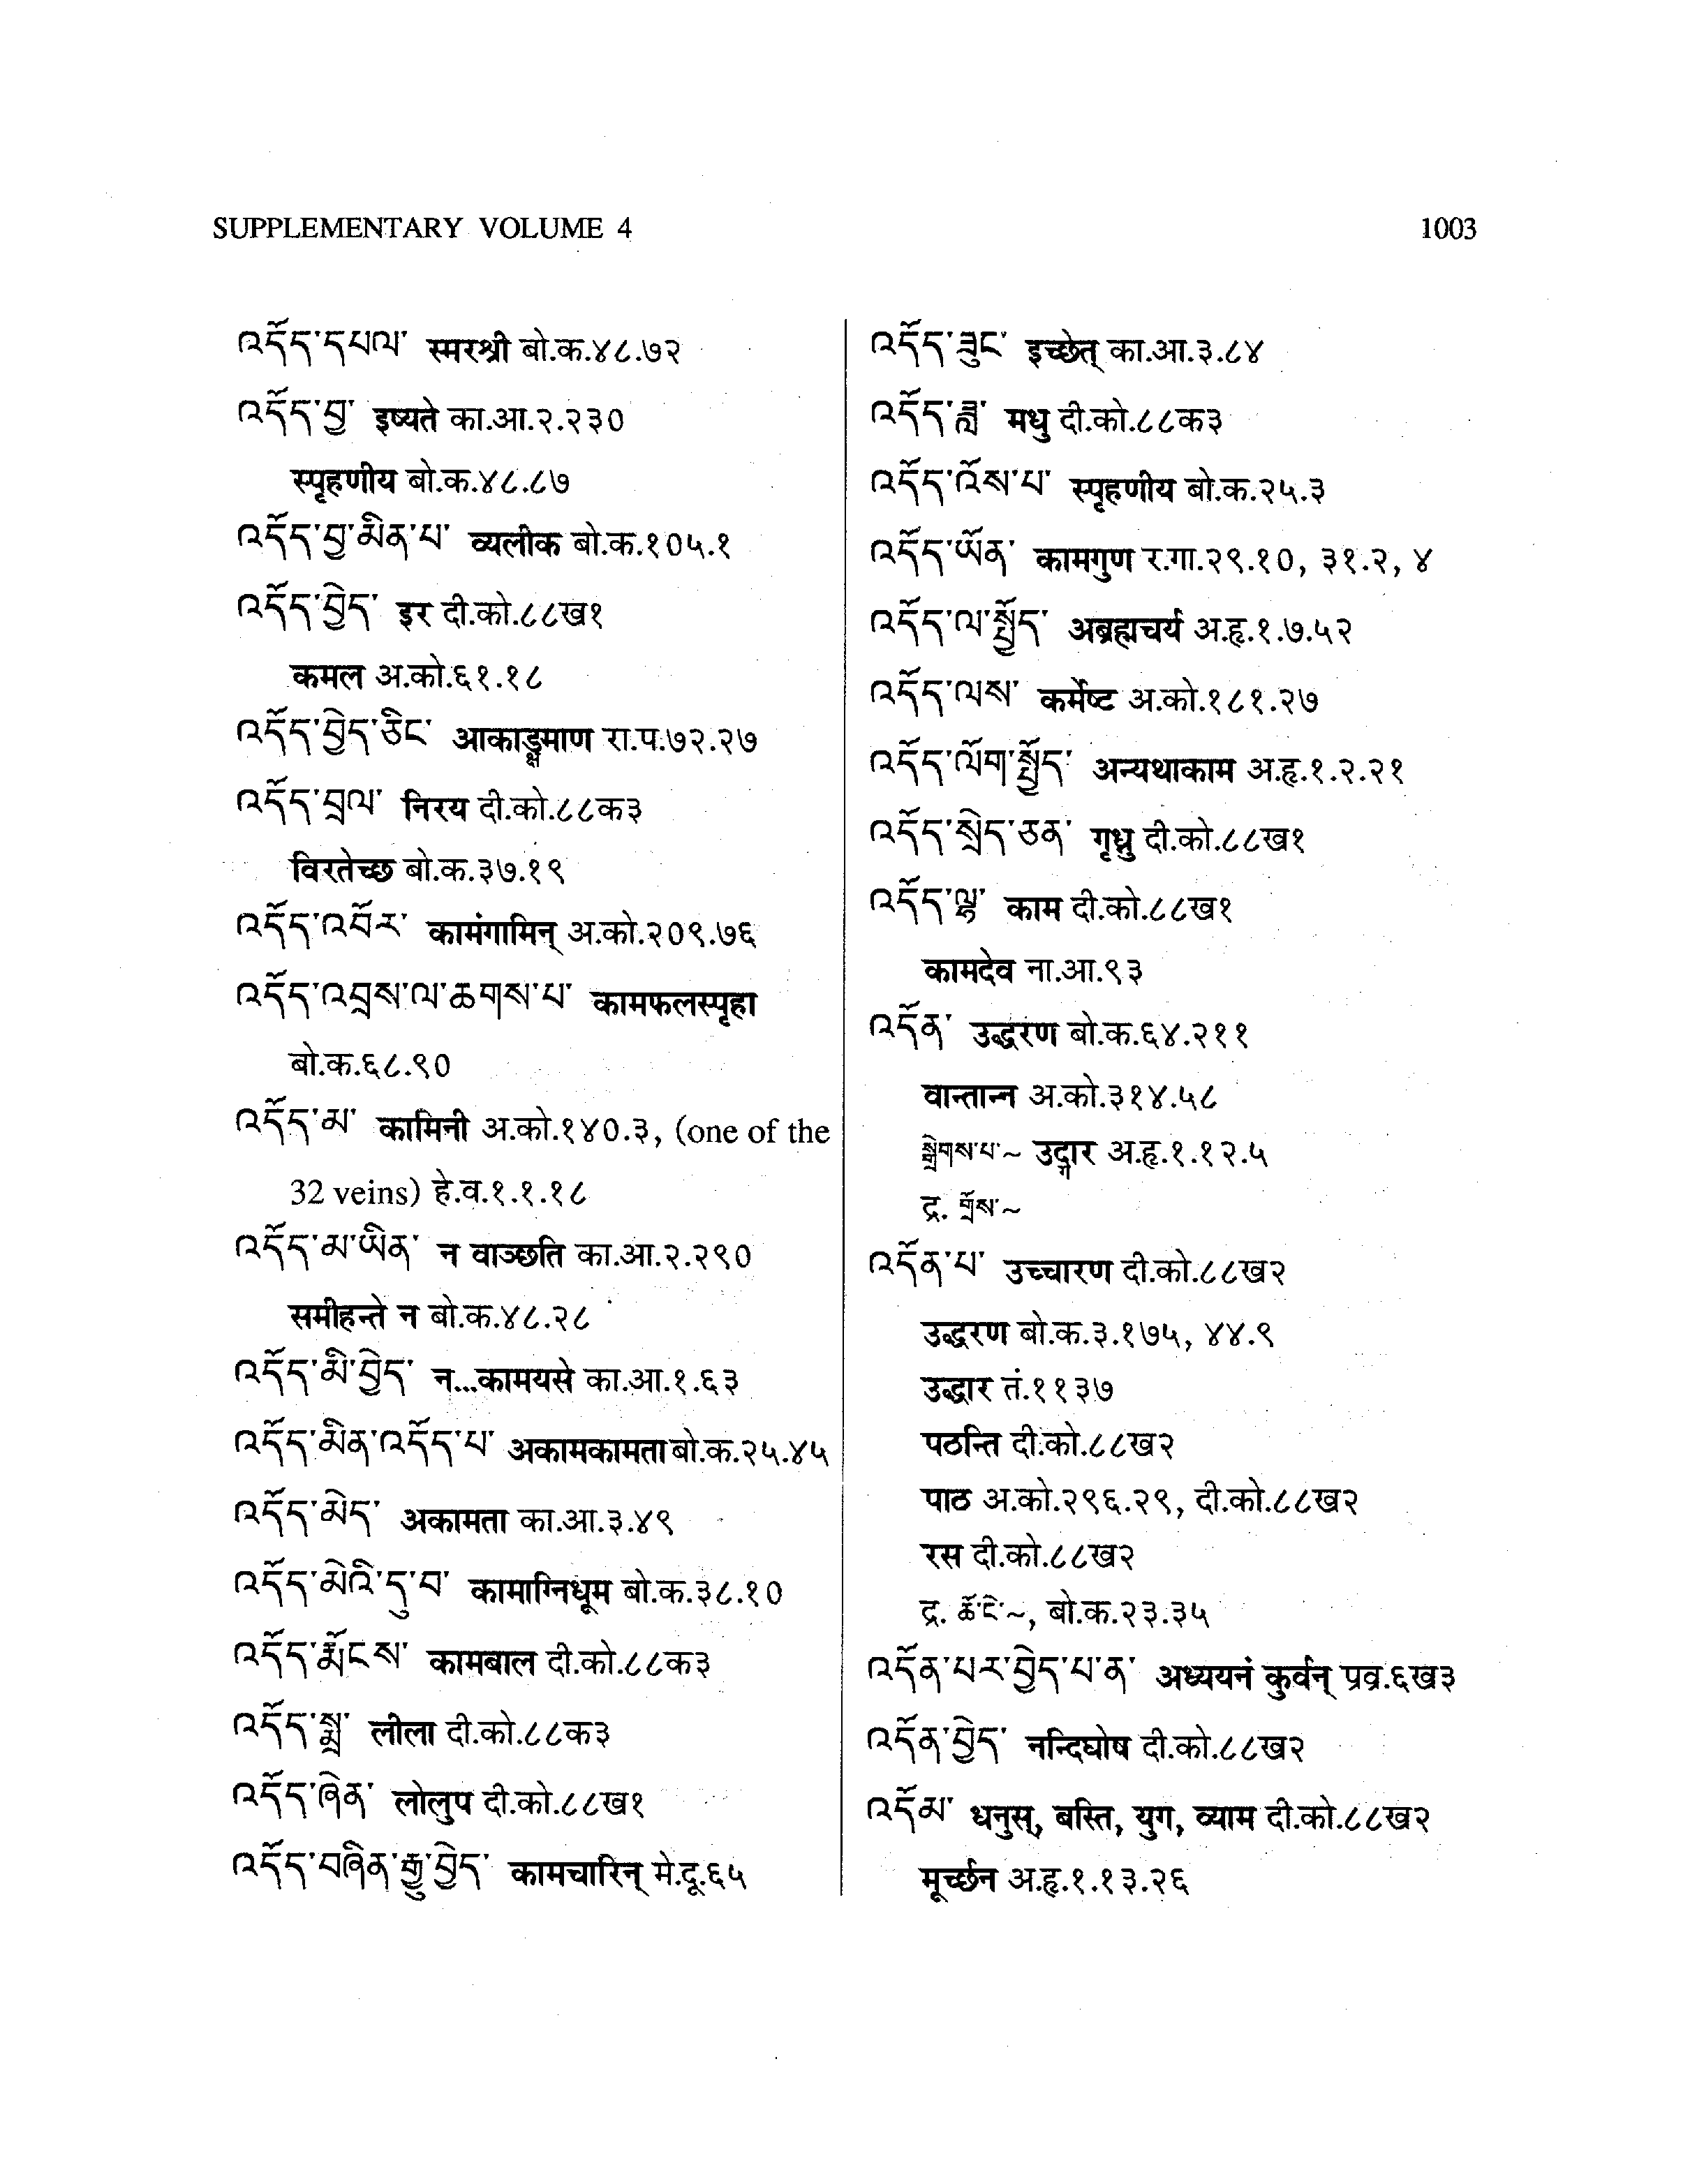 SUPPLEMENTARY VOLUME 4
1003
འདོད་དཔལ་ स्मरश्री बो.क.४८.७२
འདོད་བྱ་ इष्यते का.आ.२.२३०
स्पृहणीय बो.क.४८.८७
འདོད་བྱ་མིན་པ་ व्यलीक बो.क.१०५.१
འདོད་བྱེད་ इर दी.को.८८ख१
कमल अ.को.६१.१८
འདོད་བྱེད་ཅིང་ आकाङ्क्षमाण रा.प.७२.२७
འདོད་བྲལ་ निरय दी.को.८८क३
विरतेच्छ बो.क.३७.१९
འདོད་འབོར་ कामंगामिन् अ.को.२०९.७६
འདོད་འབྲས་ལ་ཆགས་པ་ कामफलस्पृहा
बो.क.६८.९०
འདོད་མ་ कामिनी अ.को.१४०.३, (one of the
32 veins) हे.व.१.१.१८
འདོད་མ་ཡིན་ न वाञ्छति का.आ.२.२९०
समीहन्ते न बो.क.४८.२८
འདོད་མི་བྱེད་ न...कामयसे का.आ.१.६३
འདོད་མིན་འདོད་པ་ अकामकामता बो.क.२५.४५
འདོད་མེད་ अकामता का.आ.३.४९
འདོད་མེའི་དུ་བ་ कामाग्निधूम बो.क.३८.१०
འདོད་རྨོངས་ कामबाल दी.को.८८क३
འདོད་སྨྲ་ लीला दी.को.८८क३
འདོད་ཞེན་ लोलुप दी.को.८८ख१
འདོད་བཞིན་རྒྱུ་བྱེད་ कामचारिन् मे.दू.६५
འདོད་ཟུང་ इच्छेत् का.आ.३.८४
འདོད་ཟླ་ मधु दी.को.८८क३
འདོད་འོས་པ་ स्पृहणीय बो.क.२५.३
འདོད་ཡོན་ कामगुण र.गा.२९.१०, ३१.२, ४
འདོད་ལ་སྤྱོད་ अब्रह्मचर्य अ.हृ.१.७.५२
འདོད་ལས་ कर्मेष्ट अ.को.१८१.२७
འདོད་ལོག་སྤྱོད་ अन्यथाकाम अ.हृ.१.२.२१
འདོད་སྲེད་ཅན་ गृध्नु दी.को.८८ख१
འདོད་ལྷ་ काम दी.को.८८ख१
कामदेव ना.आ.९३
འདོན་ उद्धरण बो.क.६४.२११
वान्तान्न अ.को.३१४.५८
སྒྲེགས་པ་~ उद्गार अ.हृ.१.१२.५
द्र. གྲོས་~
འདོན་པ་ उच्चारण दी.को.८८ख२
उद्धरण बो.क.३.१७५, ४४.९
उद्धार तं.११३७
पठन्ति दी.को.८८ख२
पाठ अ.को.२९६.२९, दी.को.८८ख२
रस दी.को.८८ख२
द्र. ཆོ་ངེ་~, बो.क.२३.३५
འདོན་པར་བྱེད་པ་ན་ अध्ययनं कुर्वन् प्रव्र.६ख३
འདོན་བྱེད་ नन्दिघोष दी.को.८८ख२
འདོམ་ धनुस्, बस्ति, युग, व्याम दी.को.८८ख२
मूर्च्छन अ.हृ.१.१३.२६